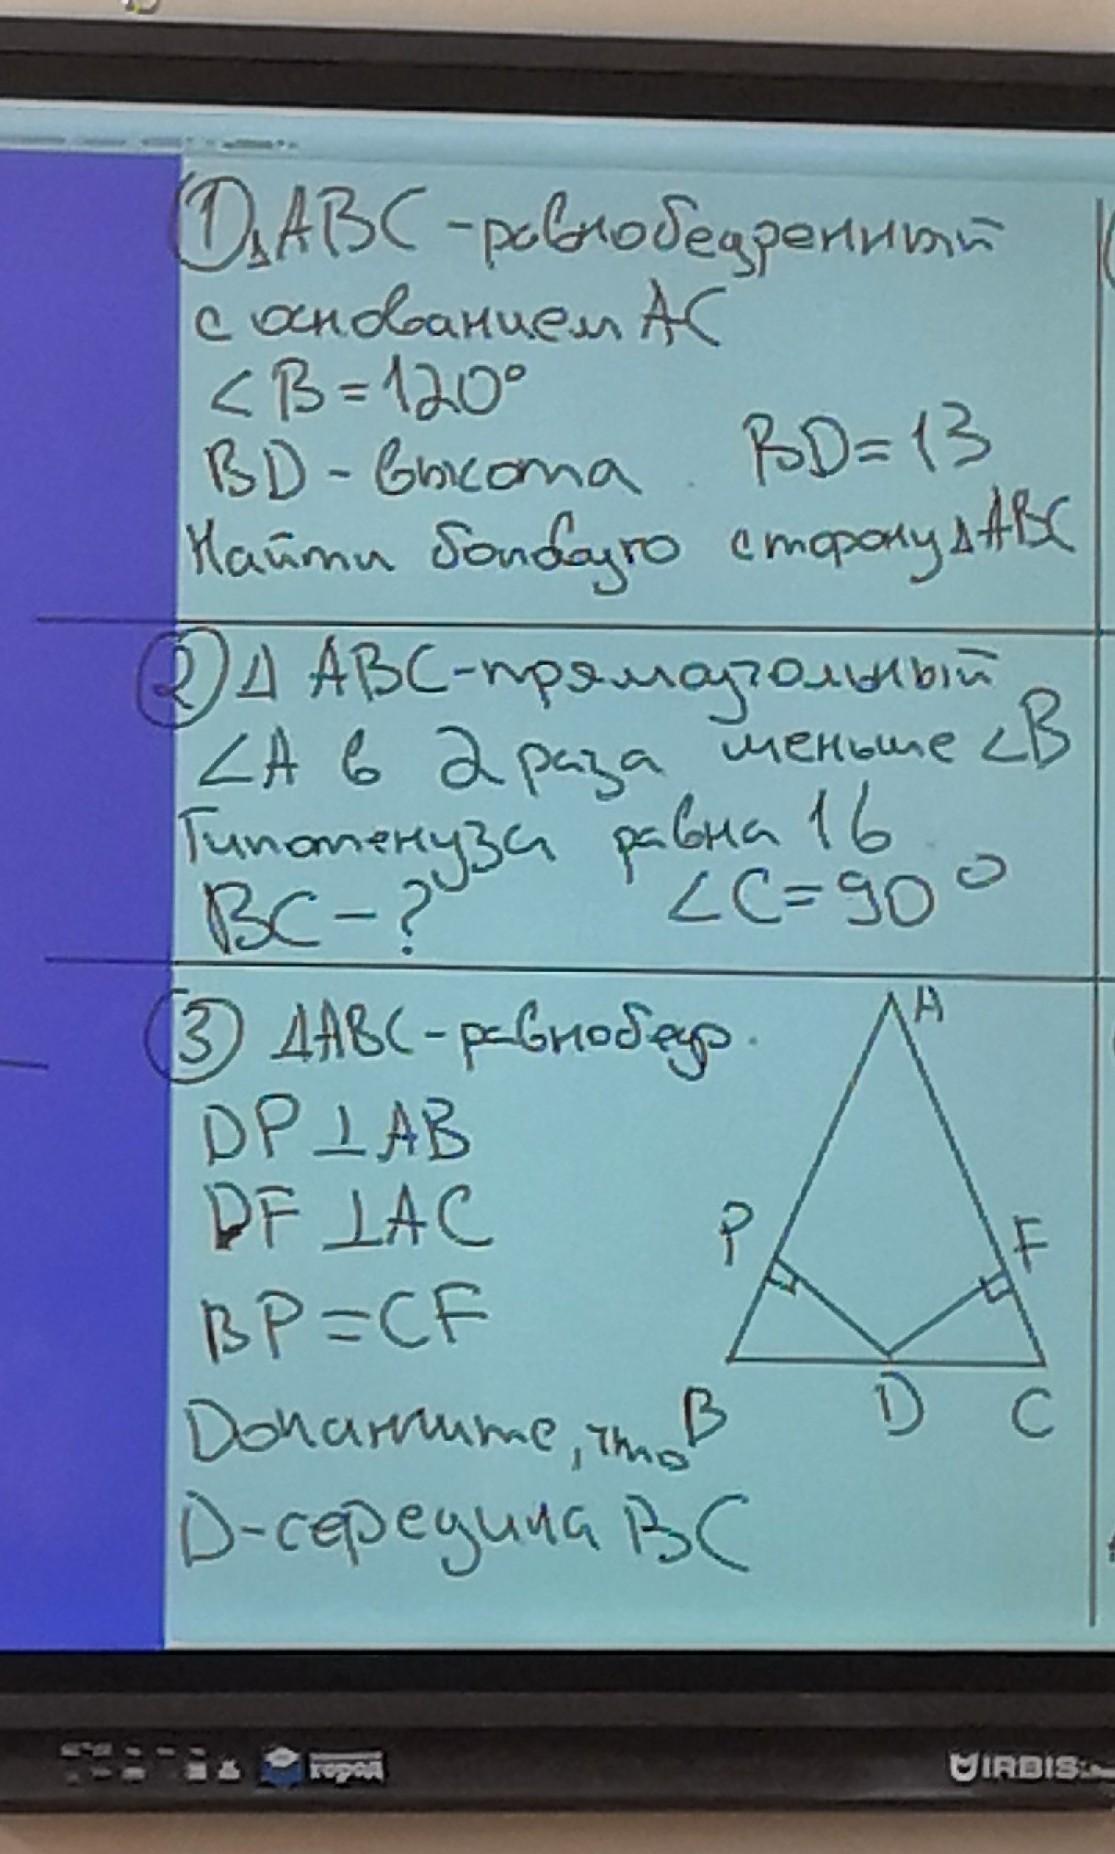 ① ΔABC - равнобедренный
с основанием AC
∠B=120°
BD - высота BD=13
Найти боковую сторону ΔABC
② Δ ABC-прямоугольный
∠A в 2 раза меньше ∠B
Гипотенуза равна 16
BC - ? ∠C=90°
③ ΔABC-равнобедр.
DP⊥AB
DF⊥AC
BP=CF
Докажите, что
D-середина BC
A
P
F
B
D
C
город
IRBIS